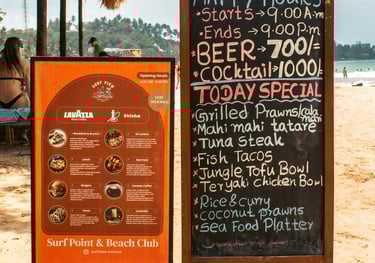 SURF VIEW
Opening Hours
LAVAZZA
Shisha
Breakfast & Brunch
Lunch
Burgers
Tacos
Surf Point & Beach Club
Happy Hours
*Starts → 9.00 A.m
*Ends → 9.00 P.m
BEER → 700/=
*Cocktail → 1000/=
TODAY SPECIAL
*Grilled Prawns/cala
mari
*Mahi mahi tatare
*Tuna steak
*Fish Tacos
*Jungle Tofu Bowl
*Teryaki Chicken Bowl
*Rice & curry
*coconut prawns
*sea Food Platter